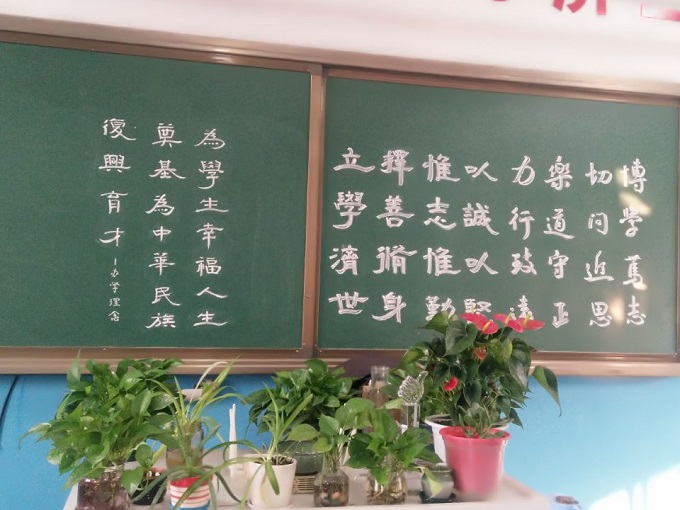 博学笃志
切问近思
楽道守正
力行致遠
以誠以
惟志惟勤
擇善脩身
立學濟世
為學生幸福人生
奠基為中華民族
復興育才
—办学理念